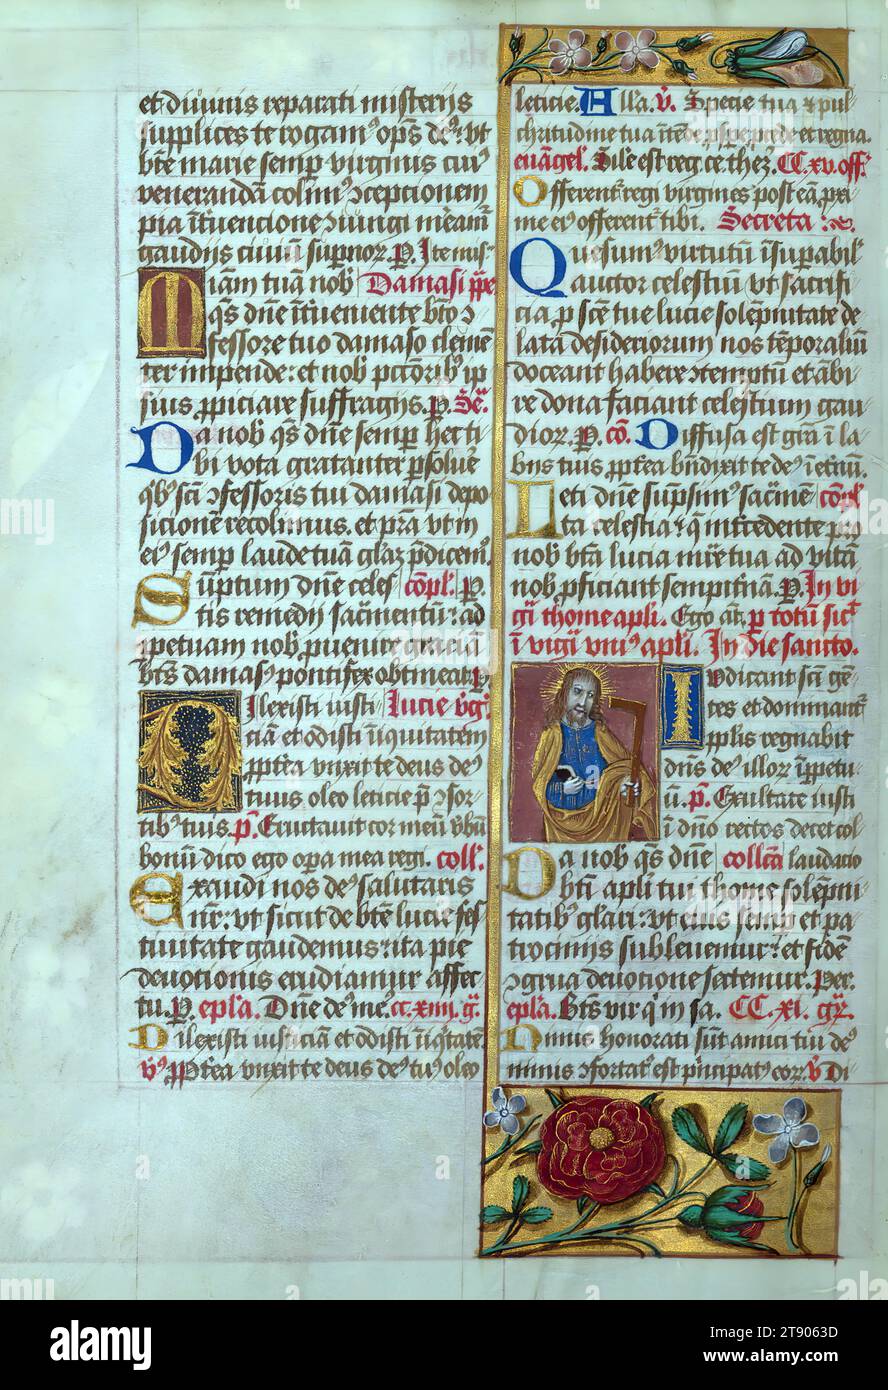 et diuinis reparati misterijs
supplices te rogamꝰ oms deꝰ: vt
bte marie semp virginis cuiꝰ
venerandam colimꝰ ꝯceptionem
pia iteruencione iungi meam
gaudijs ciuiũ supnoꝝ. P. Ite mis
Miam tuã nob Damasi ppe
qs dne iterueniente bto ꝯ
fessore tuo damaso clemen
ter impende: et nob pctorib ip
sius ppiciare suffragijs. P.
Da nob qs dne semp hec ti
bi vota gratanter psoluẽ
qbꝰ sci ꝯfessoris tui damasi depo
sicione recolimus. et pra vt in
eiꝰ semp laude tuã glaz pdicemꝰ.
Sũptum dne celes compl. P.
tis remedij sacrmentũ: ad
ppetuam nob puenire gracia
bts damasꝰ pontifex obtineat. P
Dilexisti iusti Lucie vgis
ciã et odisti iniquitatem
ppterea vnxit te deus deꝰ
tuus oleo leticie p ꝯsor
tibꝰ tuis. ps. Eructauit cor meũ vbũ
bonũ dico ego opera mea regi. coll.
Exaudi nos deꝰ salutaris
nr: vt sicut de bte lucie fes
tiuitate gaudemus: ita pie
deuotionis erudiamur affec
tu. P. epla. Dne deꝰ meꝰ. cc. xiiij. g.
Dilexisti iusticiam et odisti iniqtate
v. Ppterea vnxit te deus deꝰ tuꝰ oleo
leticie. Alla. v. Specie tua et pul
chritudine tua itede pspe pcede et regna.
euãgel. Sile est reg. ce. thez. CC. xv. off.
Offerentr regi virgines post eã. pxi
me eiꝰ offerentr tibi. Secreta
Quesumꝰ virtutũ isupabil
auctor celestiũ vt sacrifi
cia. p sce tue lucie solepnitate de
lata desideriorum nos teporaliũ
doceant habere ꝯtemptũ et abi
re dona faciant celestium gau
dioꝝ. P. cõ. Diffusa est gra i la
biis tuis. ppterea bndixit te deꝰ i eternũ.
Leti dne supsimꝰ sacrme compl.
ta celestia: q intcedente pro
nob bta lucia mre tua ad vitã
nob pficiant sempitnã. P. In vi
gil thome apli. Ego at. p totũ sict
i vigil vniꝰ apli. In die sancto.
Iudicant sci ge
tes et dominantr
pplis regnabit
dns deꝰ illoꝝ ippetu
ũ. ps. Exultate iusti
i dno rectos decet col
Da nob qs dne collcta laudatio
bti apli tui thome solepni
tatibꝰ glari: vt eius semp et pa
trocinijs subleuemur: et fidẽ
ꝯgrua deuotione sectemur. Per.
epla. Bts vir q in sa. CC. xl. gr.
Nimis honorati sũt amici tui deꝰ
nimis ꝯfortatꝰ est pncipatꝰ eoꝝ. v Di
alamy
Image ID: 2T9063D
www.alamy.com